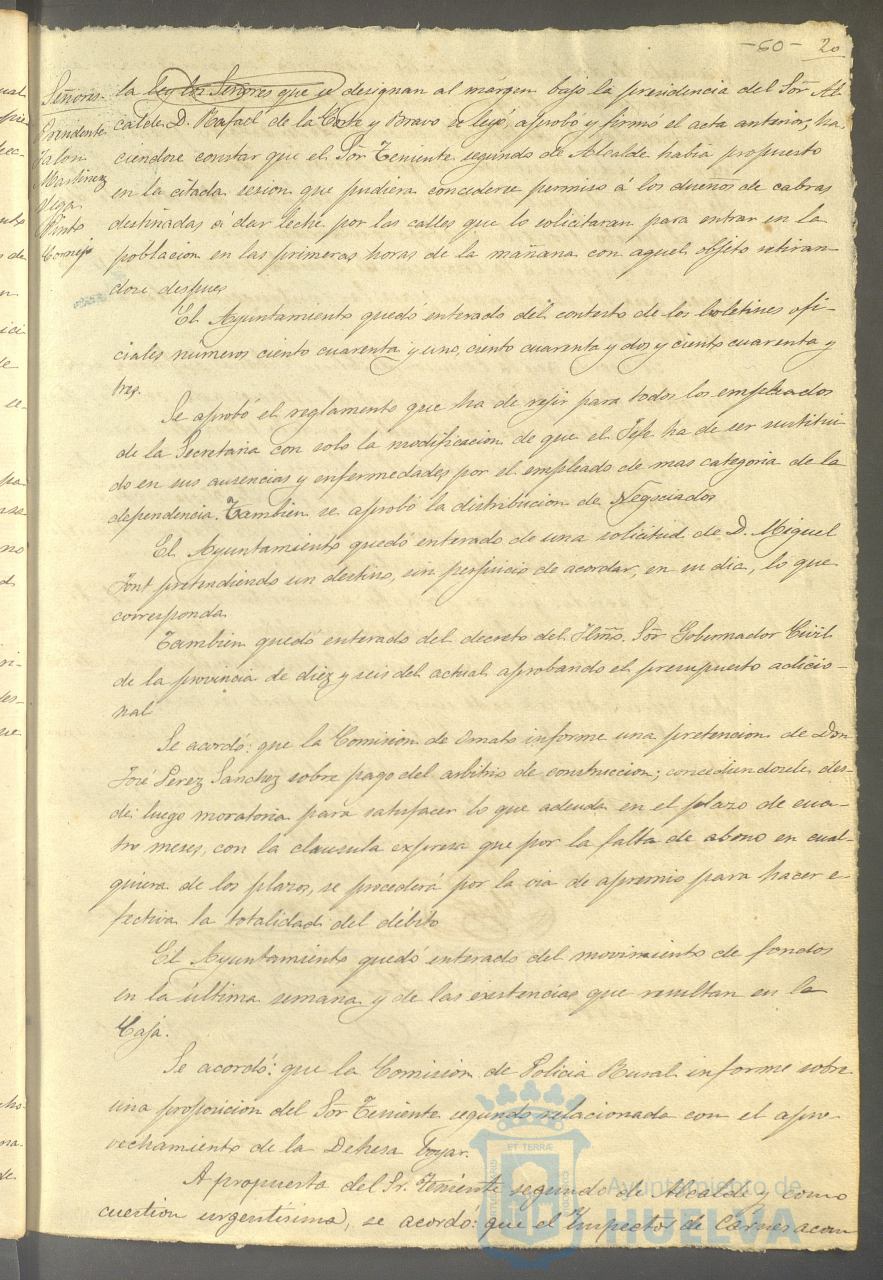 -60- 20
Señores.
Presidente
Jalon
Martinez
Vega
Pinto
Cornejo
la ley los Señores que se designan al márgen bajo la presidencia del Sor Al-
calde D. Rafael de la Corte y Bravo se leyó, aprobó y firmó el acta anterior, ha
ciendose constar que el Sor Teniente segundo de Alcalde habia propuesto
en la citada sesion que pudiera concederse permiso á los dueños de cabras
destinadas á dar leche por las calles que lo solicitaran para entrar en la
poblacion en las primeras horas de la mañana con aquel objeto retiran
dose despues
El Ayuntamiento quedó enterado del contesto de los boletines ofi-
ciales numeros ciento cuarenta y uno, ciento cuarenta y dos y ciento cuarenta y
tres.
Se aprobó el reglamento que ha de rejir para todos los empleados
de la Secretaria con solo la modificacion de que el Jefe ha de ser sustitui
do en sus ausencias y enfermedades por el empleado de mas categoria de la
dependencia. Tambien se aprobó la distribucion de Negociados
El Ayuntamiento quedó enterado de una solicitud de D. Miguel
Font pretendiendo un destino, sin perjuicio de acordar, en su dia, lo que
corresponda
Tambien quedó enterado del decreto del Ilmo. Sor Gobernador Civil
de la provincia de diez y seis del actual aprobando el presupuesto adicio-
nal
Se acordó: que la Comision de Ornato informe una pretencion de Don
José Perez Sanchez sobre pago del arbitrio de construccion; concediendosele des-
de luego moratoria para satisfacer lo que adeuda en el plazo de cua-
tro meses, con la clausula expresa que por la falta de abono en cual-
quiera de los plazos, se procederá por la via de apremio para hacer e-
fectiva la totalidad del débito
El Ayuntamiento quedó enterado del movimiento de fondos
en la última semana y de las existencias que resultan en la
Caja.
Se acordó: que la Comision de Policia Rural informe sobre
una proposicion del Sor Teniente segundo relacionada con el apro
vechamiento de la Dehesa boyar.
A propuesta del Sr. Teniente segundo de Alcalde y como
cuestion urgentisima, se acordó: que el Inspector de Carnes acom
ET TERRÆ
Ayuntamiento de
HUELVA